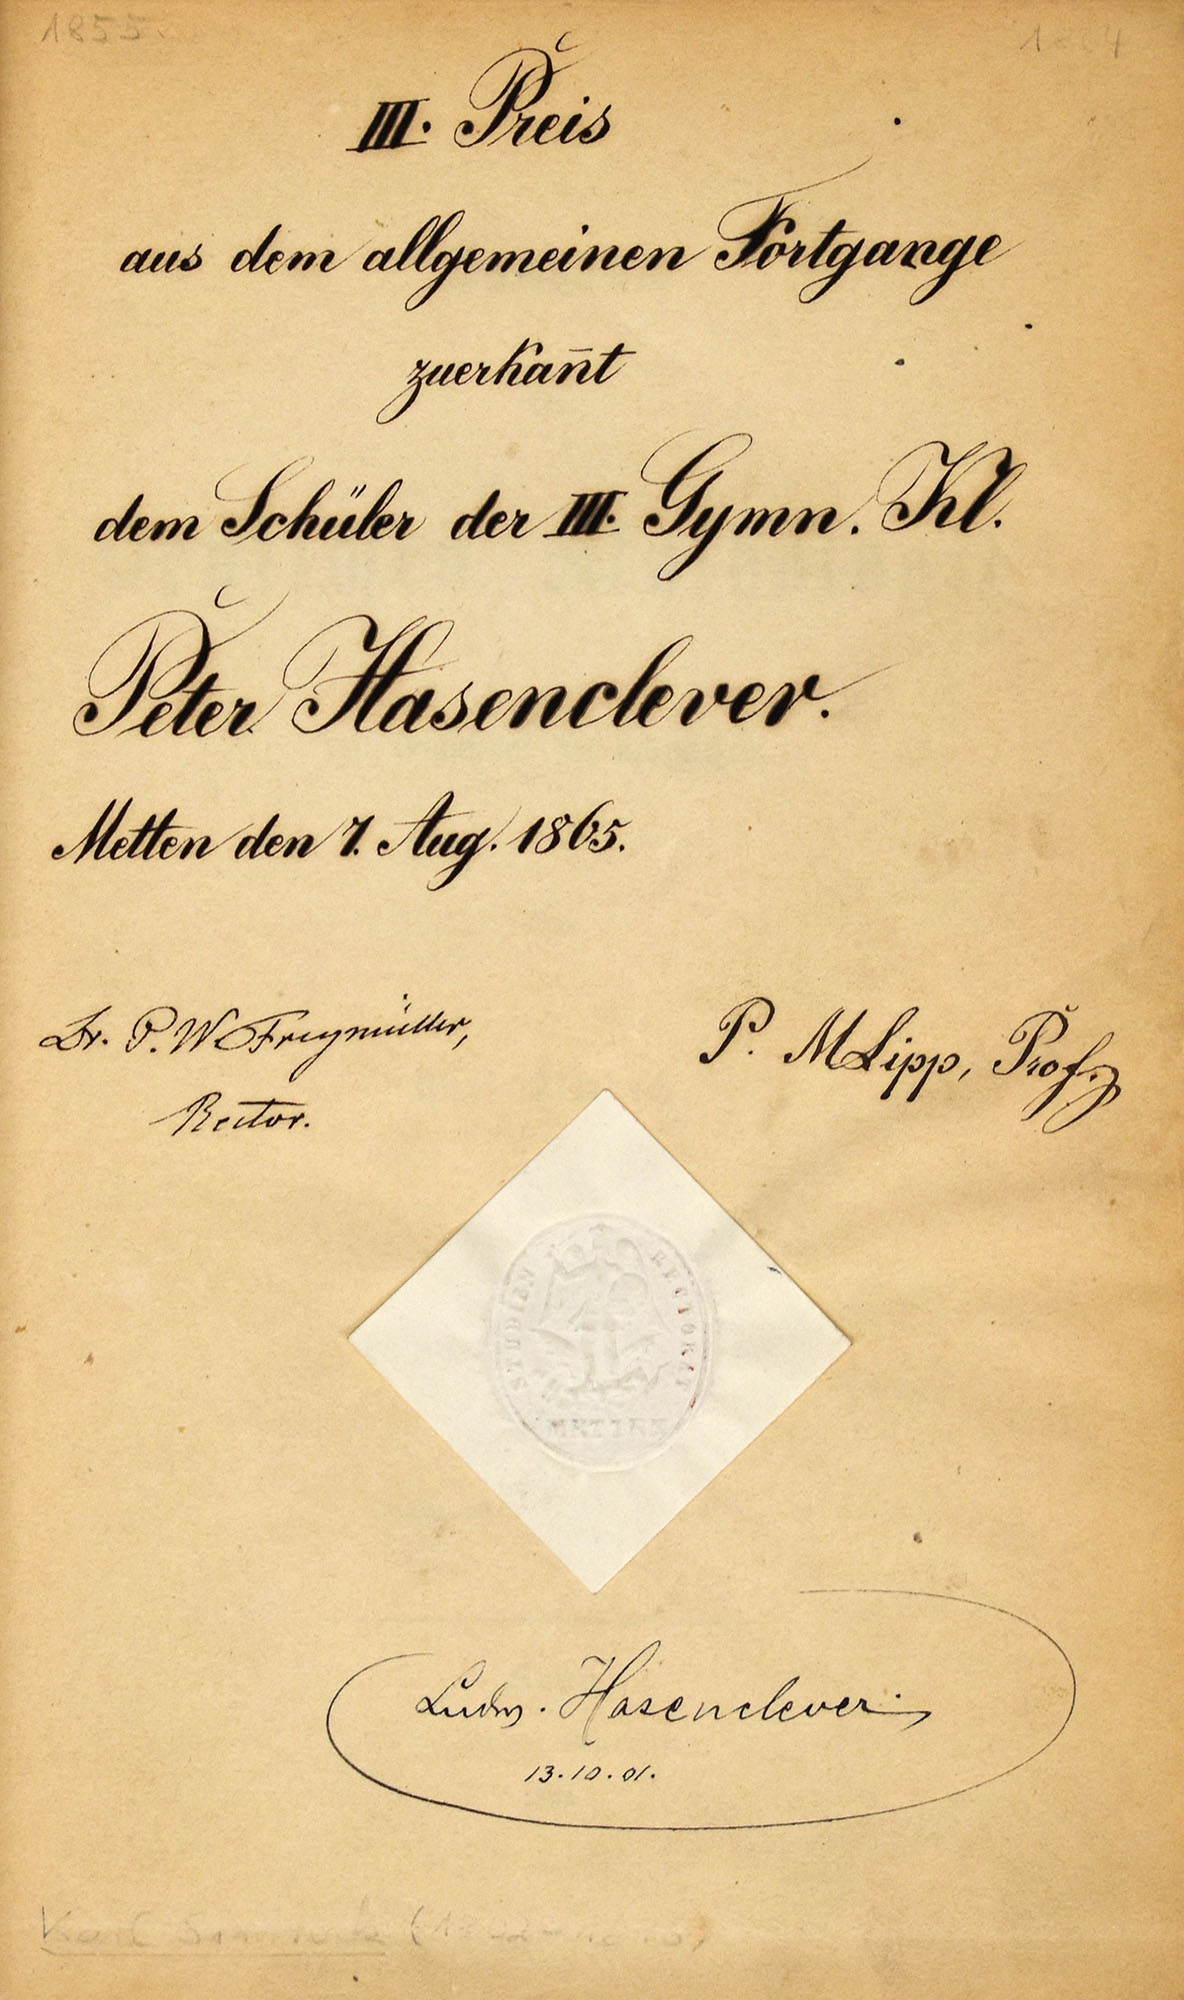 1855.
III. Preis
aus dem allgemeinen Fortgange
zuerkan̄t
dem Schüler der III. Gymn. Kl.
Peter Hasenclever.
Metten den 7. Aug. 1865.
Dr. P. W Freymüller,
Rector.
P. M Lipp, Prof.
STUDIEN RECTORAT
METTEN
Ludw. Hasenclever.
13.10.01.
Karl